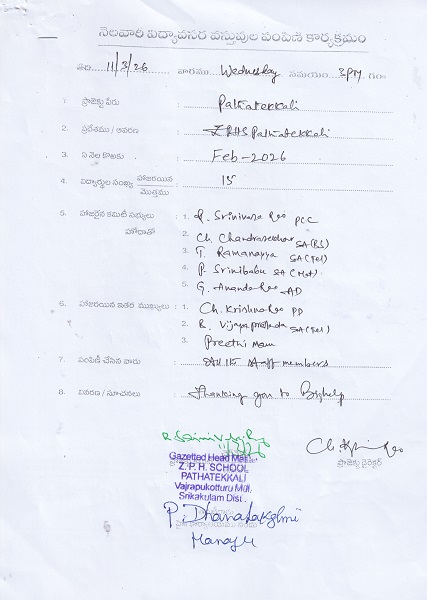 నెలవారీ విద్యావసర వస్తువుల పంపిణీ కార్యక్రమం
తేది 11/3/26 వారము Wednesday సమయం 3PM గం
1. ప్రాజెక్టు పేరు : Pathatekkali
2. ప్రదేశము / ఆవరణ : ZPHS Pathatekkali
3. ఏ నెల కొఱకు : Feb-2026
4. విద్యార్ధుల సంఖ్య హాజరయిన మొత్తము : 15
5. హాజరైన కమిటీ సభ్యులు హోదాతో : 1. Srinivasa Rao PCC
2. Ch. Chandrasekhar SA(BS)
3. T. Ramanayya SA(Tel)
4. P. Srinibabu SA
5. G. Ananda Rao AD
6. హాజరయిన ఇతర ముఖ్యులు : 1. Ch. Krishna Rao PD
2. Vijaya SA
3. Preethi Mam
7. పంపిణీ చేసిన వారు : All the staff members
8. వివరణ / సూచనలు : Thanking you to Bighelp
Gazetted Head
Z. P. H. SCHOOL
PATHATEKKALI
Vajrapukotturu Mdl,
Srikakulam Dist.
ప్రాజెక్టు డైరెక్టర్
P. Dhanalakshmi
Manager